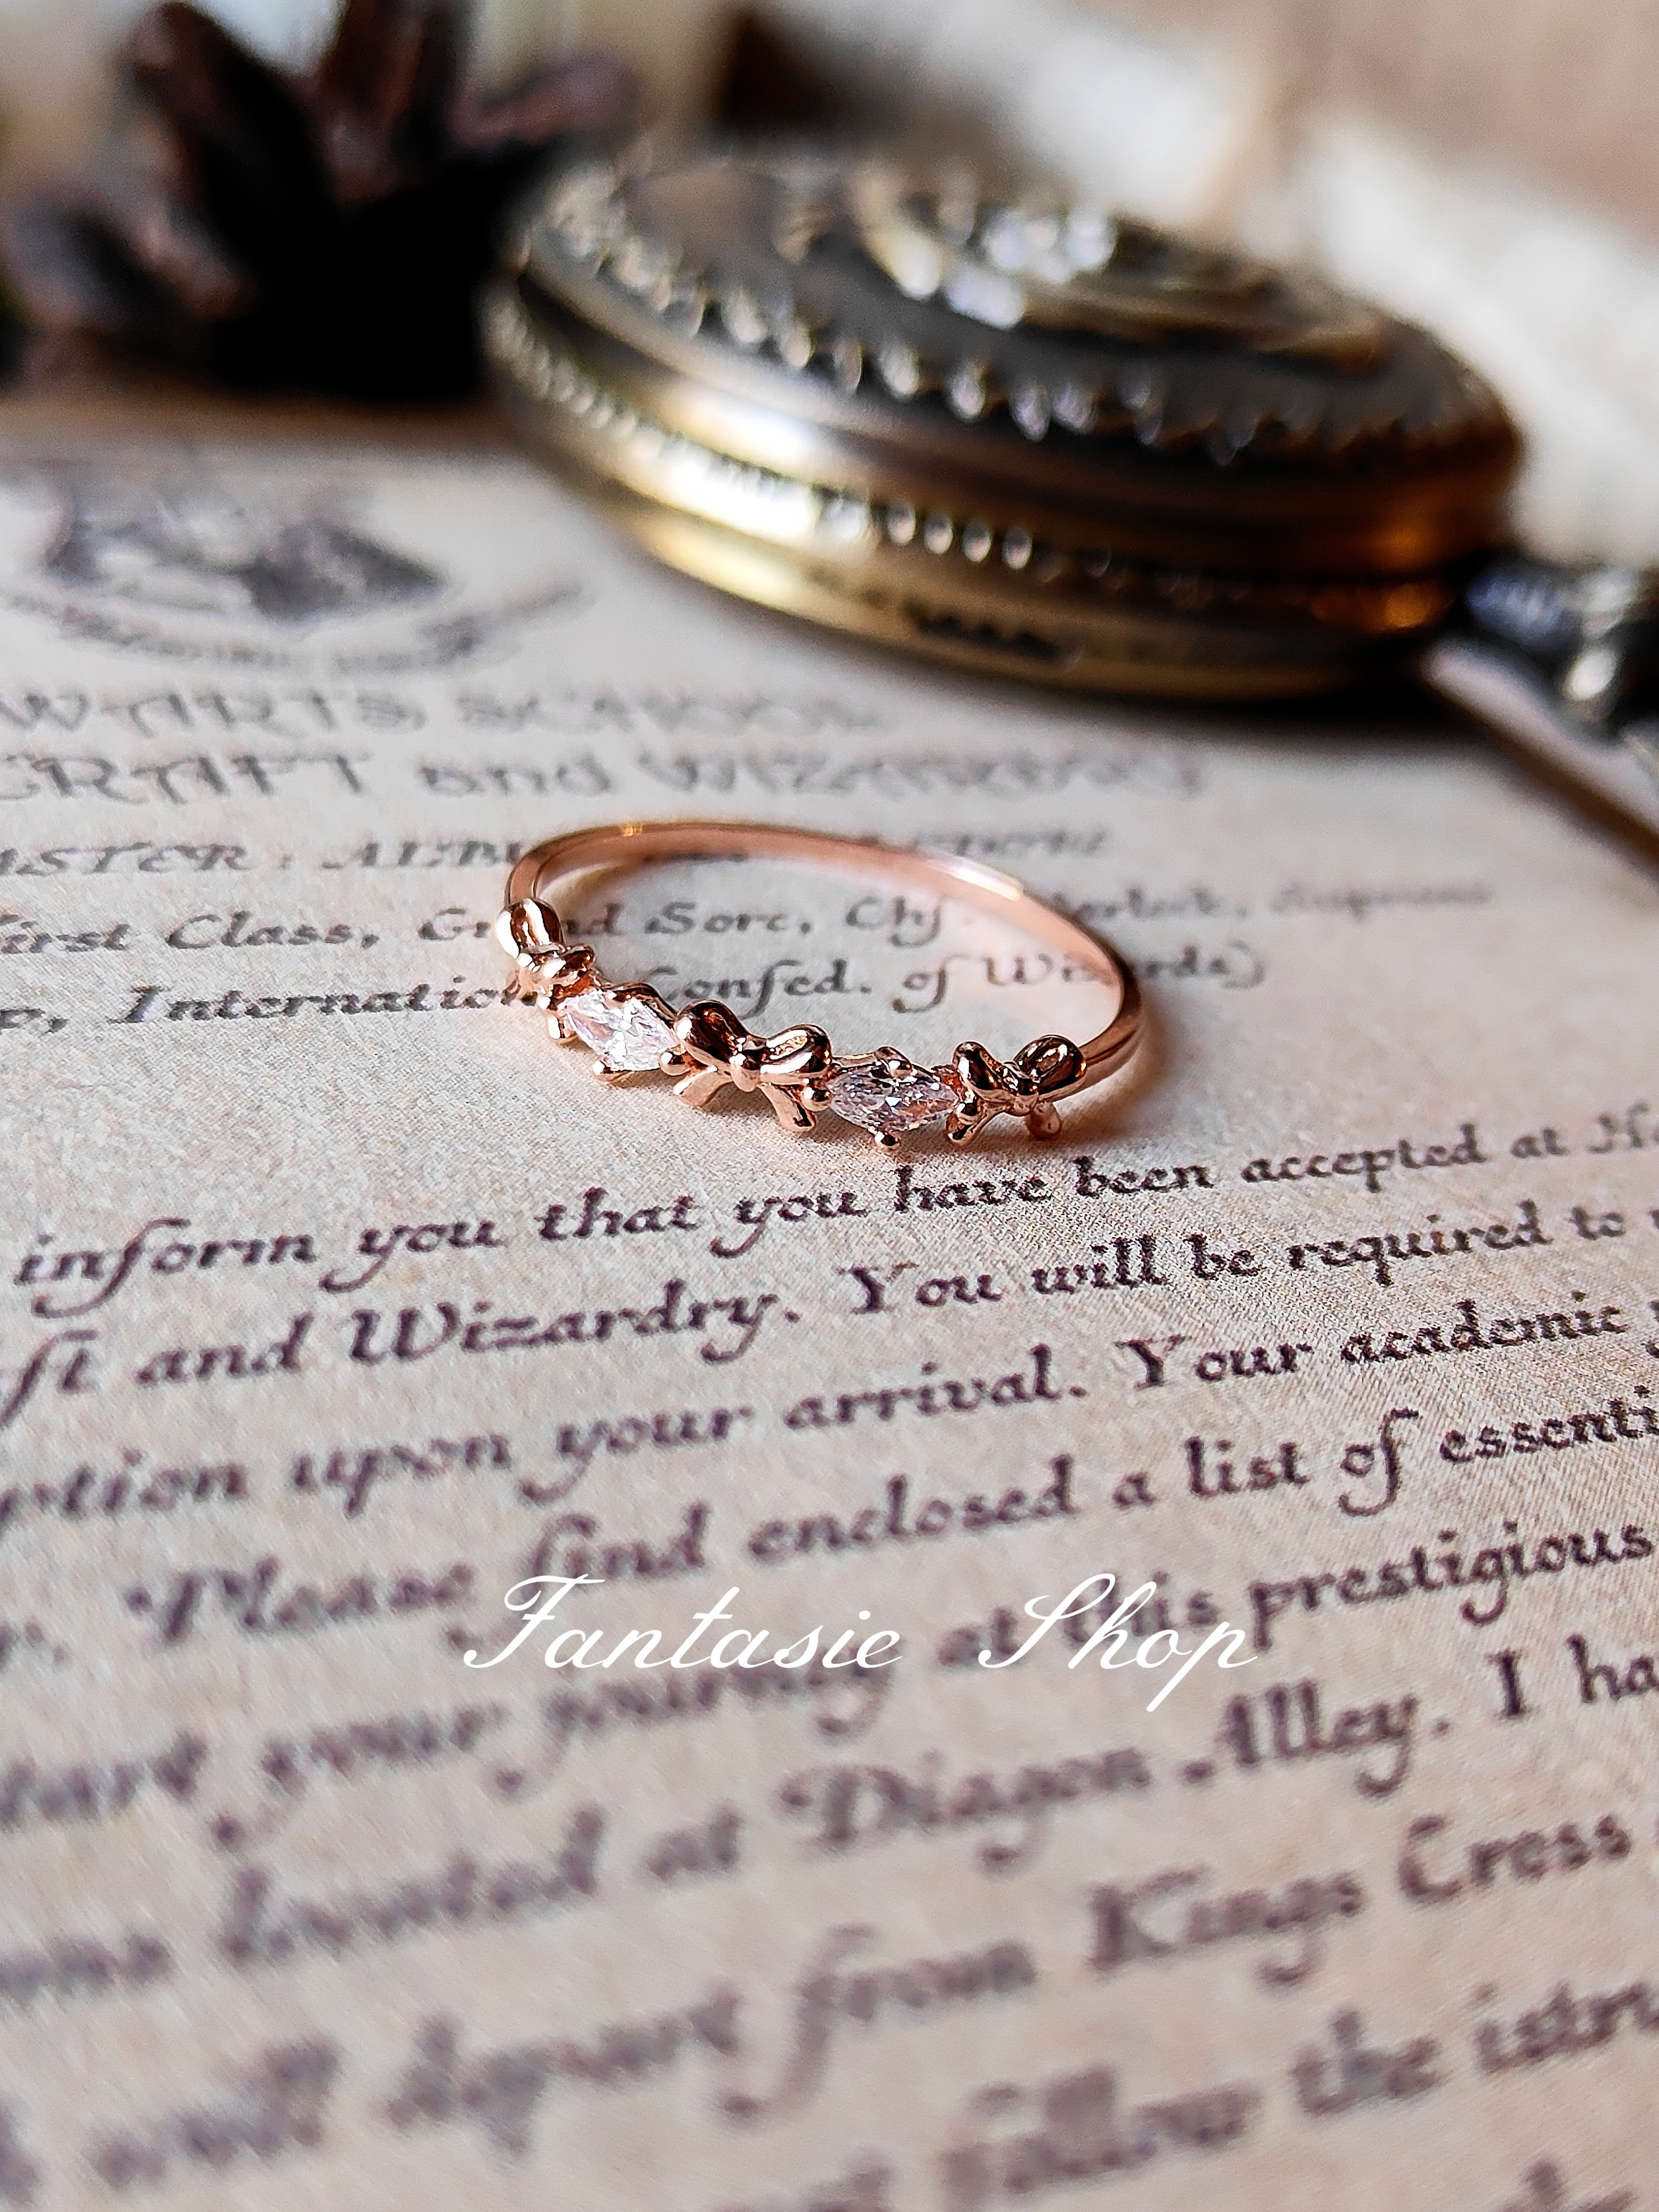 WARTS SCHOOL
CRAFT and WIZARDRY
ASTER : ALBU
First Class, Grand Sorc, Chf
, International Confed. of Wizards)
inform you that you have been accepted at
ft and Wizardry. You will be required to
ption upon your arrival. Your academic
Please find enclosed a list of essenti
your journey at this prestigious
Fantasie Shop
located at Diagon Alley. I ha
depart from Kings Cross
follow the istru